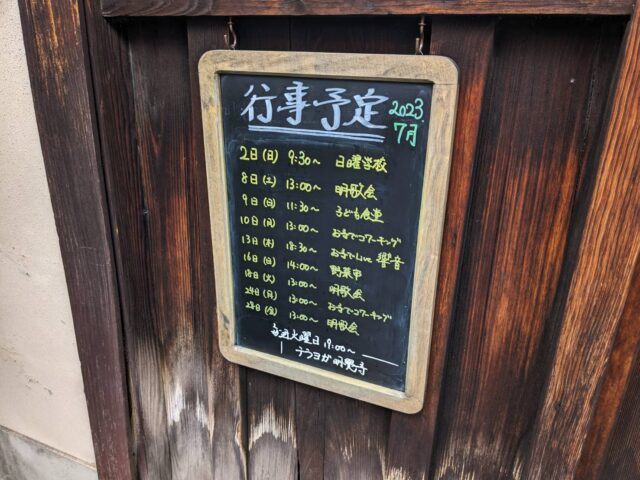 行事予定 2023. 7月
2日(日) 9:30〜 日曜学校
8日(土) 13:00〜 明歌会
9日(日) 11:30〜 子ども食堂
10日(月) 13:00〜 お寺でコワーキング
13日(木) 18:30〜 お寺でLive 響音
16日(日) 14:00〜 野菜市
18日(火) 13:00〜 明歌会
24日(月) 13:00〜 お寺でコワーキング
28日(金) 13:00〜 明歌会
毎週火曜日 19:00〜
テラヨガ 明覺寺